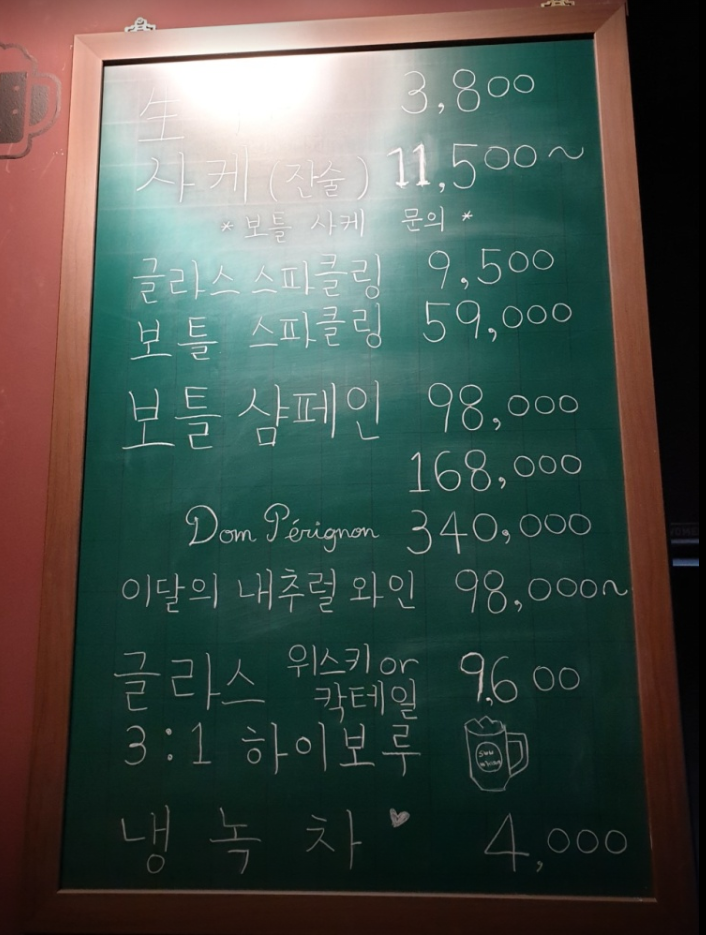 生 3,800
사케 (잔술) 11,500~
* 보틀 사케 문의 *
글라스 스파클링 9,500
보틀 스파클링 59,000
보틀 샴페인 98,000
168,000
Dom Pérignon 340,000
이달의 내추럴 와인 98,000~
글라스 위스키 or 칵테일 9,600
3:1 하이보루
냉 녹 차 4,000